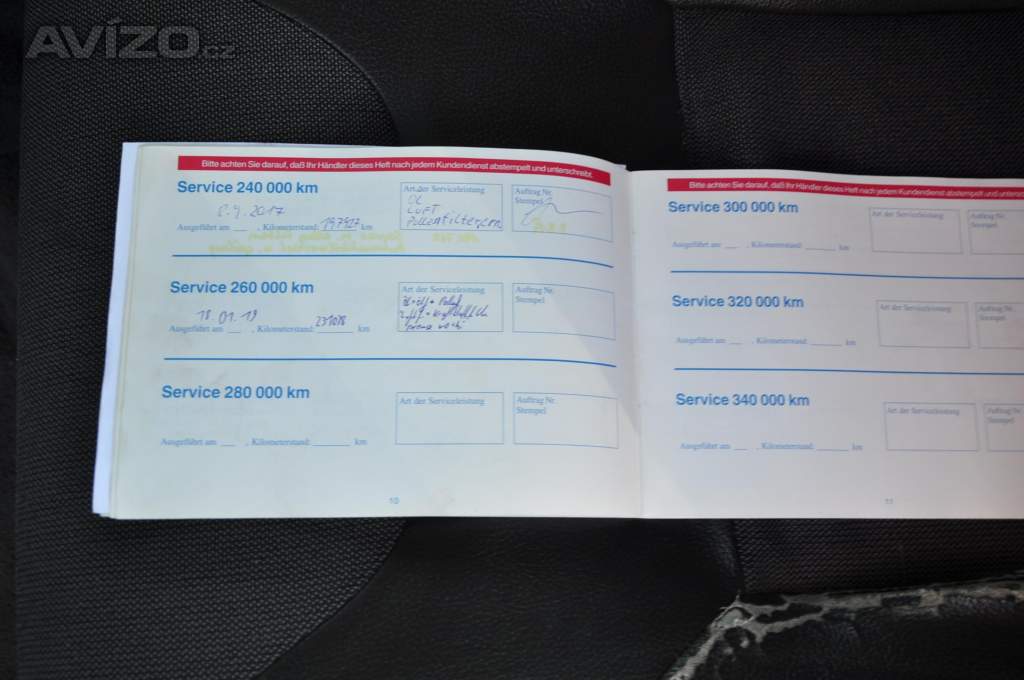 AVÍZO.cz
Bitte achten Sie darauf, daß Ihr Händler dieses Heft nach jedem Kundendienst abstempelt und unterschreibt.
Service 240 000 km
Art der Serviceleistung
Auftrag Nr.
Stempel
ÖL
LUFT
Pollenfilter
4.2017
Ausgeführt am , Kilometerstand: 197927 km
Service 260 000 km
Art der Serviceleistung
Auftrag Nr.
Stempel
18.01.19
Ausgeführt am , Kilometerstand: 231018 km
Service 280 000 km
Art der Serviceleistung
Auftrag Nr.
Stempel
Ausgeführt am , Kilometerstand: km
10
Bitte achten Sie darauf, daß Ihr Händler dieses Heft nach jedem Kundendienst abstempelt und unters
Service 300 000 km
Art der Serviceleistung
Auftrag Nr.
Stempel
Ausgeführt am , Kilometerstand: km
Service 320 000 km
Art der Serviceleistung
Auftrag Nr.
Stempel
Ausgeführt am , Kilometerstand: km
Service 340 000 km
Art der Serviceleistung
Auftrag Nr.
Stempel
Ausgeführt am , Kilometerstand: km
11